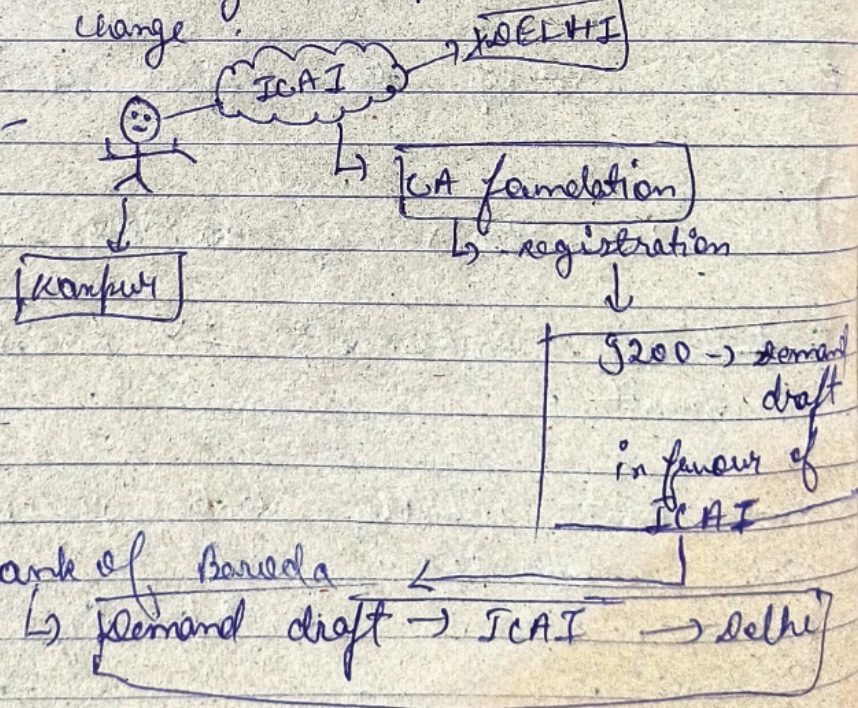 change
DELHI
ICAI
CA foundation
registration
Kanpur
9200 → Demand
draft
in favour of
ICAI
ank of Baroda
Demand draft → ICAI → Delhi